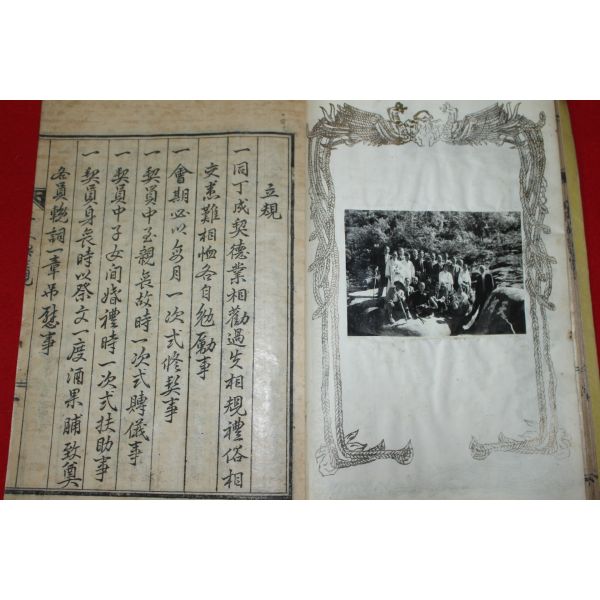 立規
一同丁成契德業相勸過失相規禮俗相
交患難相恤各自勉勵事
一會期必以每月一次式修契事
一契員中至親喪故時一次式賻儀事
一契員中子女間婚禮時一次式扶助事
一契員身喪時以祭文一度酒果脯致奠
各員輓詞一章吊慰事